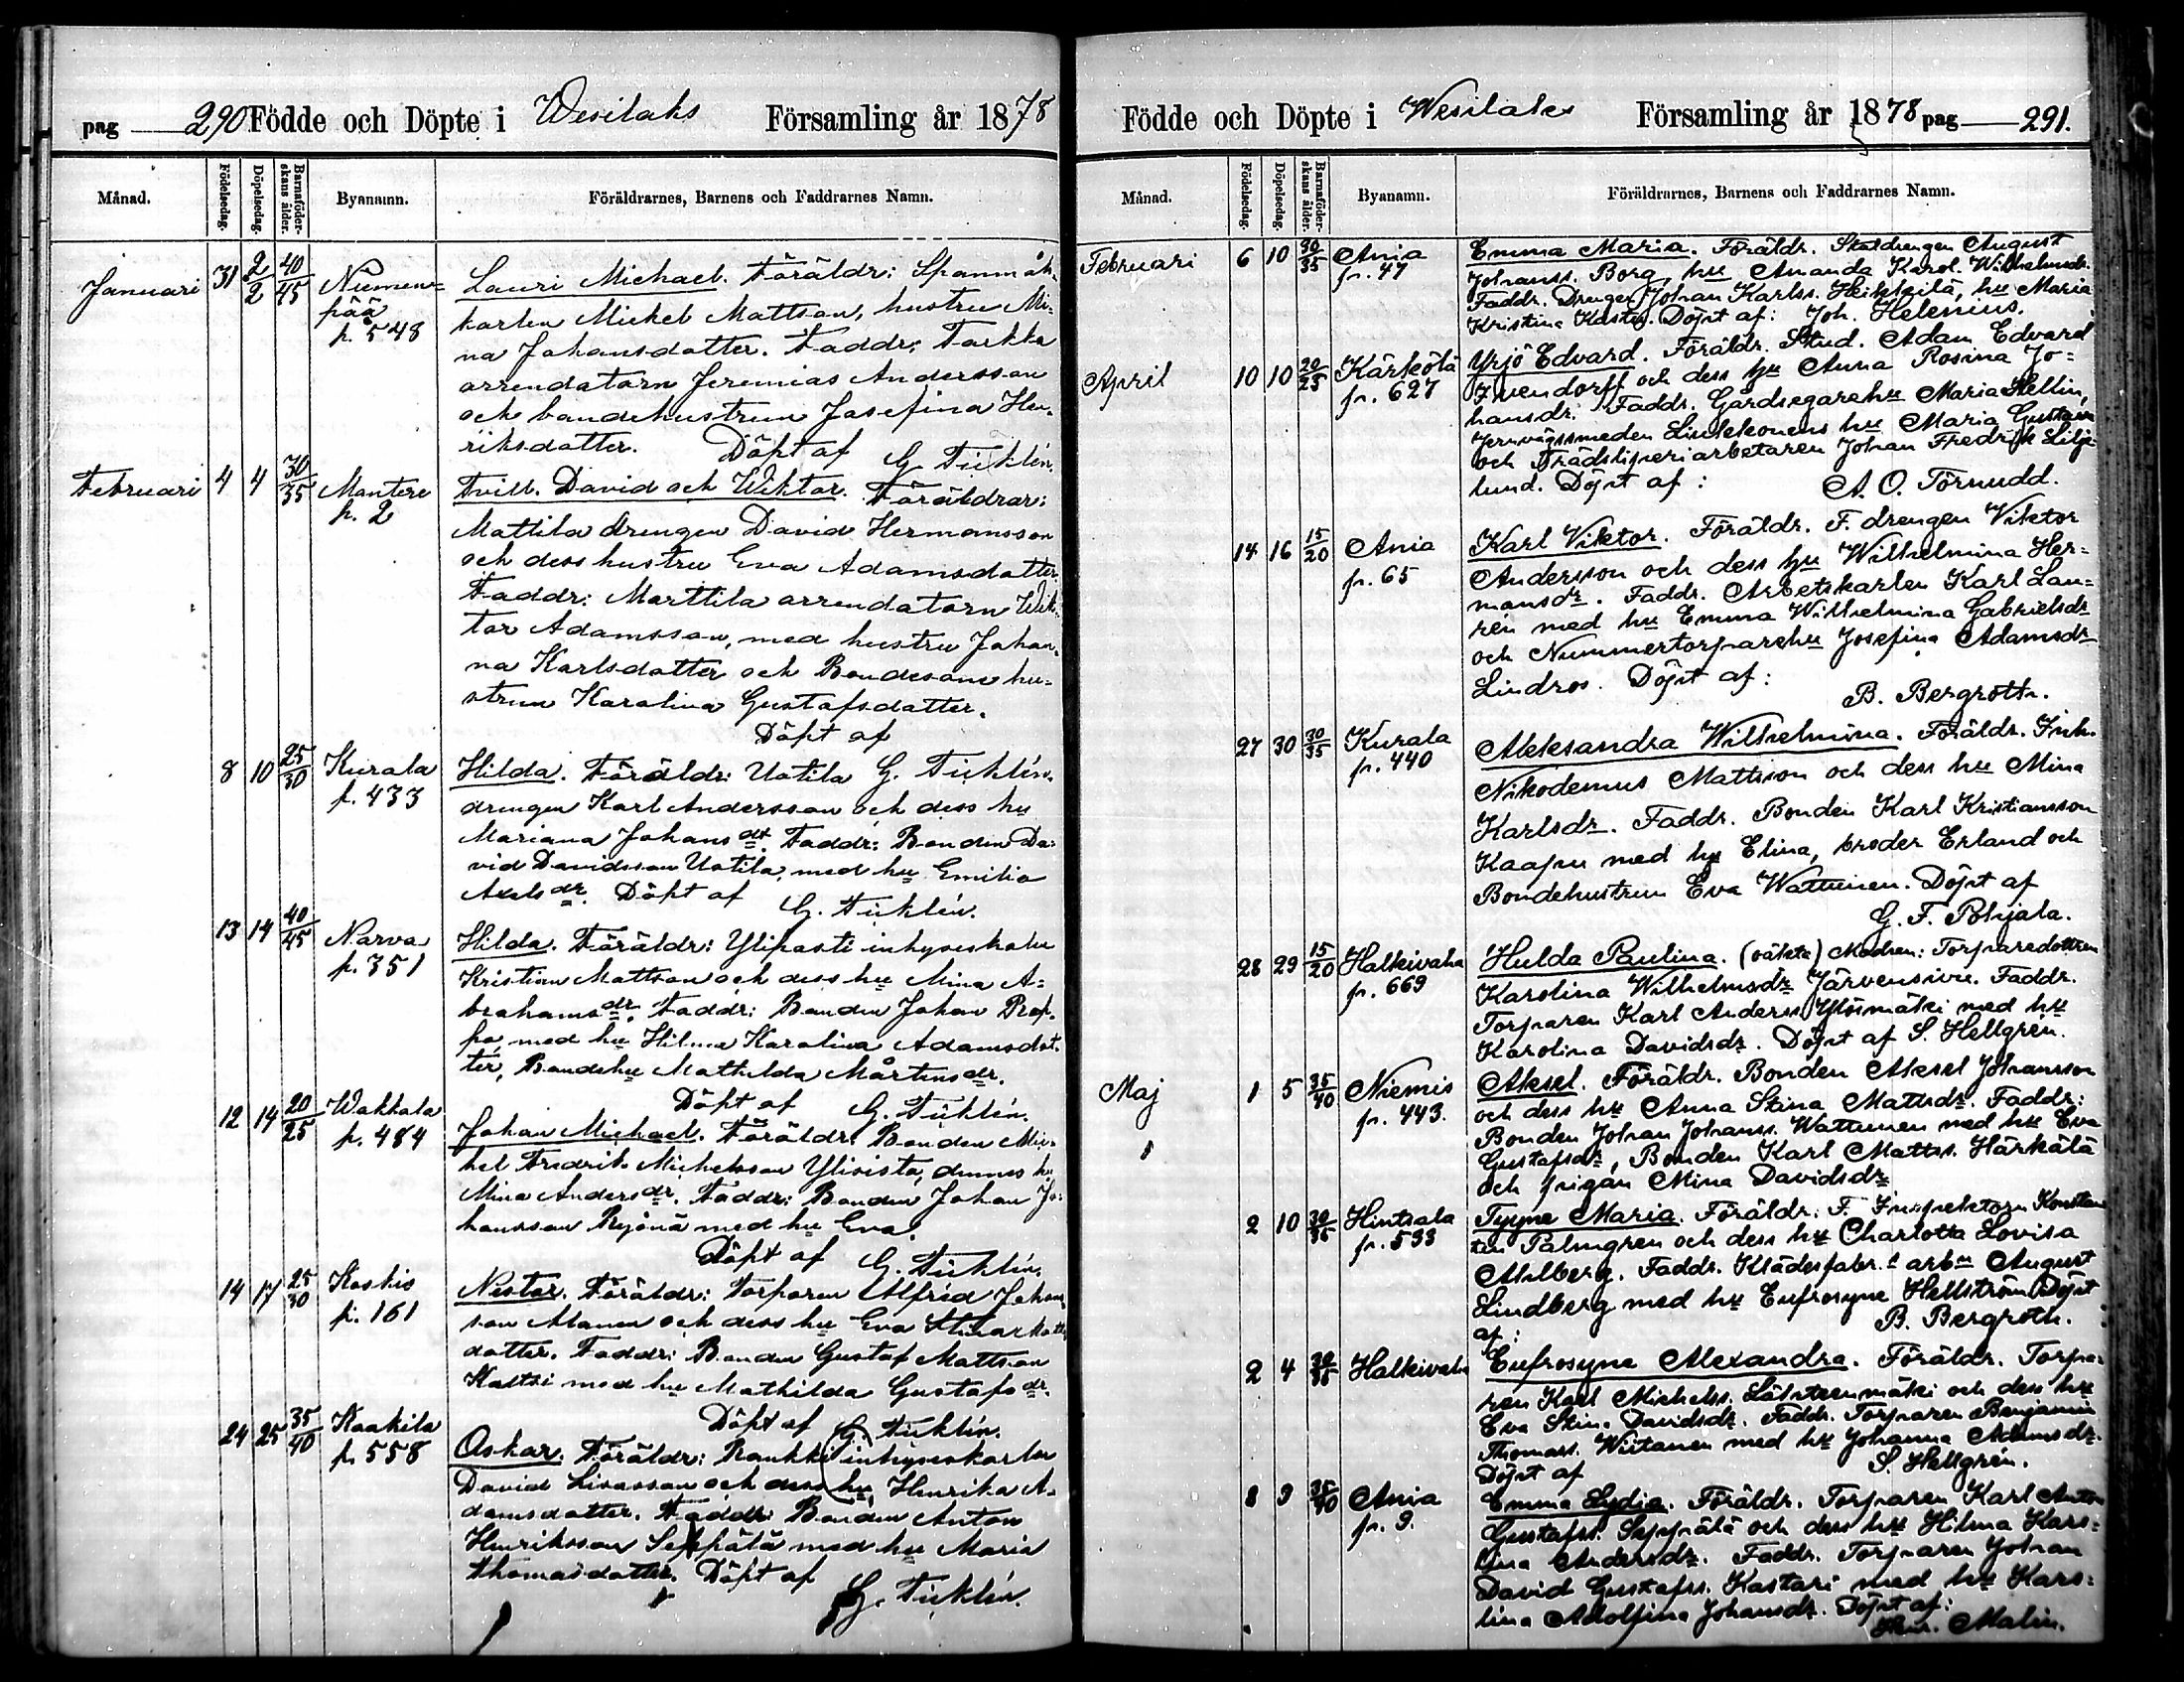 pag 290 Födde och Döpte i Wesilaks Församling år 1878
Månad. Födelsedag. Döpelsedag. Barnaföderskans ålder. Byanamn. Föräldrarnes, Barnens och Faddrarnes Namn.
Januari 31 2/2 40/45 Niemenpää p. 548
Lauri Michael. Föräldr: Spanmåls
karlen Mickel Mattson, hustru Mi-
na Johansdotter. Faddr: Torkko
arrendatorn Jeremias Andersson
och bondehustrun Josefina Hen-
riksdotter. Döpt af G. Ticklén.
Februari 4 4 30/35 Mantere p. 2
Tvill. David och Wiktor. Föräldrar:
Mattila drengen David Hermansson
och dess hustru Eva Adamsdotter
Faddr: Marttila arrendatorn Wik-
tor Adamsson, med hustru Johan-
na Karlsdotter och Bondesone hu-
strun Karolina Gustafsdotter.
Döpt af
8 10 25/30 Kurala p. 433
Hilda. Föräldr: Uotila G. Ticklén.
drengen Karl Andersson och dess hu
Mariana Johansdr. Faddr: Bonden Da-
vid Davidsson Uotila, med hu Emilia
Axelsdr. Döpt af G. Ticklén.
13 14 40/45 Narva p. 351
Hilda. Föräldr: Ylipasti inhyseskarlen
Kristian Mattson och dess hu Mina A-
brahamsdr, Faddr: Bonden Johan Prop-
po, med hu Hilma Karolina Adamsdot-
ter, Bondehu Mathilda Mårtensdr.
Döpt af G. Ticklén.
12 14 20/25 Wakkala p. 484
Johan Michael. Föräldr: Bonden Mic-
kel Fredrik Michelsson Ylivista, dennes hu
Mina Andersdr. Faddr: Bonden Johan Jo-
hansson Rejonä med hu Eva.
Döpt af G. Ticklén.
14 17 25/30 Koskis p. 161
Nestor. Föräldr: Torparen Alfred Johans
son Manni och dess hu Eva
dotter. Faddr: Bonden Gustaf Mattson
Kaltsi med hu Mathilda Gustafsdr.
Döpt af G. Ticklén.
24 25 35/40 Kaakila p. 558
Oskar. Föräldr: Raukko inhyseskarlen
David Lisasson och dess hu Henrika A-
damsdotter. Faddr: Bonden Anton
Henriksson Seppälä med hu Maria
Thomasdotter. Döpt af
G. Ticklén.
Födde och Döpte i Wesilaks Församling år 1878 pag 291.
Månad. Födelsedag. Döpelsedag. Barnaföderskans ålder. Byanamn. Föräldrarnes, Barnens och Faddrarnes Namn.
Februari 6 10 30/35 Ania p. 47
Emma Maria. Föräldr. Stordrengen August
Johanss. Borg, hu Amanda Karol. Wilhelmsdr.
Faddr. Drengen Johan Karlss. Heikkilä, hu Maria
Kristina Koster. Döpt af: Joh. Helenius.
April 10 10 20/25 Kärkölä p. 627
Yrjö Edvard. Föräldr. Stud. Adam Edvard
Ivendorff och dess hu Anna Rosina Jo-
hansdr. Faddr. Gårdsegarehu Maria Hellin,
Jernvägssmeden Linkkonens hu Maria Gustava
och Trädsliperiarbetaren Johan Fredrik Lilje-
lund. Döpt af: A. O. Törnudd.
14 16 15/20 Ania p. 65
Karl Viktor. Föräldr. F. drengen Viktor
Andersson och dess hu Wilhelmina Her-
mansdr. Faddr. Arbetskarlen Karl Lau-
rén med hu Emma Wilhelmina Gabrielsdr
och Nummertorparehu Josefina Adamsdr
Lindros. Döpt af:
B. Bergroth.
27 30 30/35 Kurala p. 440
Aleksandra Wilhelmina. Föräldr. Inh.
Nikodemus Mattsson och dess hu Mina
Karlsdr. Faddr. Bonden Karl Kristiansson
Kaapu med hu Elina, broder Erland och
Bondehustrun Eva Wattunen. Döpt af
G. F. Pohjala.
28 29 15/20 Halkivaha p. 669
Hulda Paulina. (oäkta) Modren: Torparedottren
Karolina Wilhelmsdr Järvensivu. Faddr.
Torparen Karl Anderss. Ylösmäki med hu
Karolina Davidsdr. Döpt af S. Hellgrén.
Maj 1 5 35/40 Niemis p. 443.
Aksel. Föräldr. Bonden Aksel Johansson
och dess hu Anna Stina Mattsdr. Faddr:
Bonden Johan Johanss. Wattunen med hu Eva
Gustafsdr, Bonden Karl Mattss. Härkälä
och pigan Mina Davidsdr
2 10 30/35 Hintsala p. 533
Tyyne Maria. Föräldr: F. Inspektorn Konstan
tin Palmgren och dess hu Charlotta Lovisa
Ahlberg. Faddr. Klädesfabr.s arbn August
Lindberg med hu Eufrosyne Hellström. Döpt
af: B. Bergroth.
2 4 30/35 Halkivaha
Eufrosyne Alexandra. Föräldr. Torpa-
ren Karl Michelss. Lähteenmäki och dess hu
Eva Stina Davidsdr. Faddr. Torparen Benjamin
Thomass. Wiitanen med hu Johanna Adamsdr.
Döpt af S. Hellgrén.
8 9 35/40 Ania p. 9.
Emma Lydia. Föräldr. Torparen Karl Anton
Gustafss. Seppälä och dess hu Hilma Karo-
lina Andersdr. Faddr. Torparen Johan
David Gustafss. Kastari med hu Karo-
lina Adolfina Johansdr. Döpt af:
Malin.